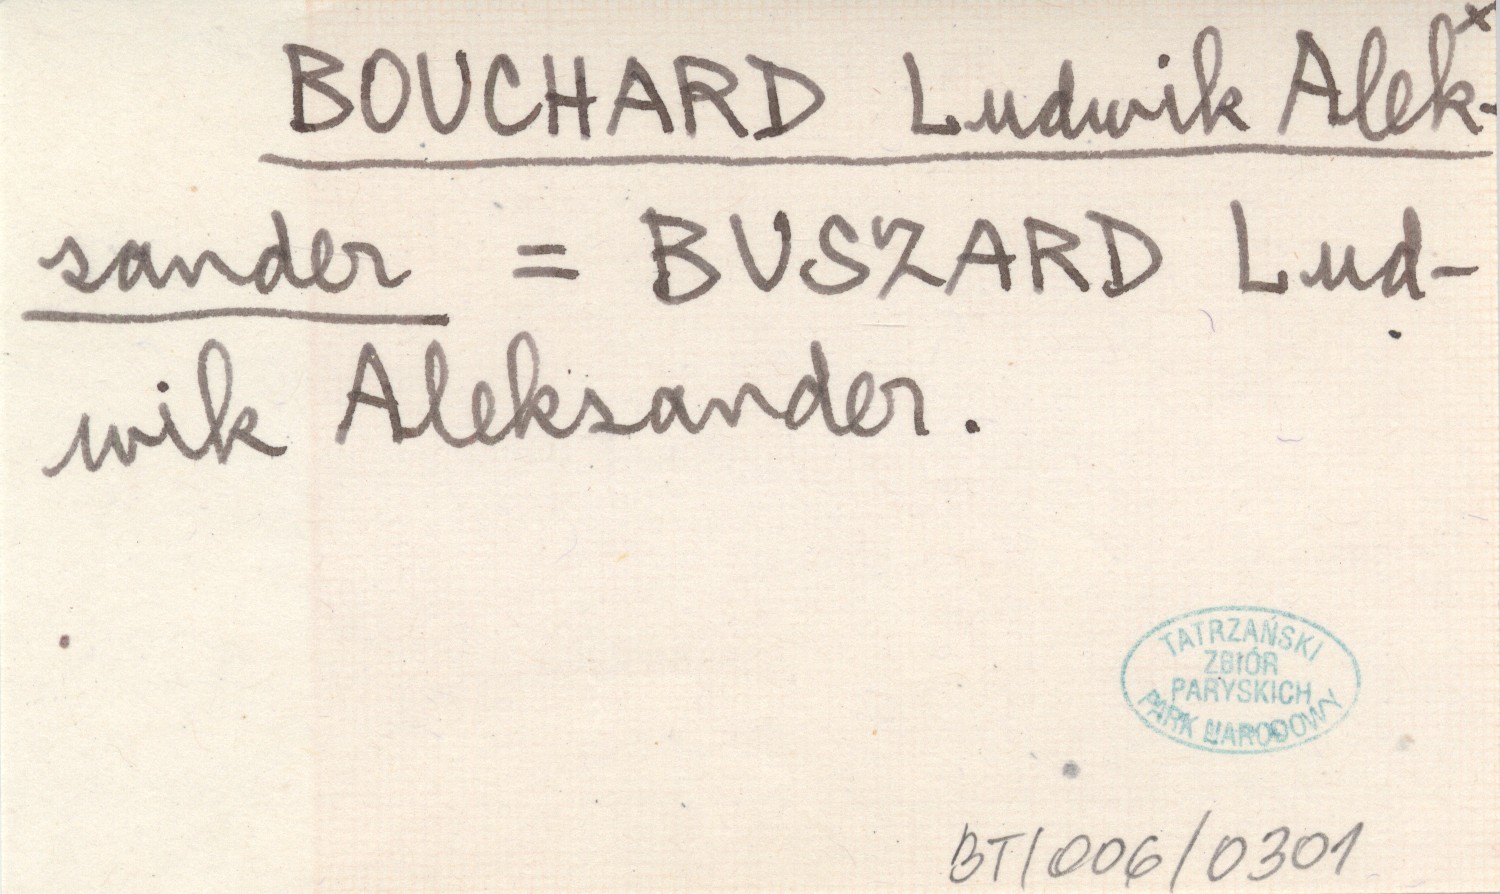 x
BOUCHARD Ludwik Alek-
sander = BUSZARD Lud-
wik Aleksander.
TATRZAŃSKI
ZBIÓR
PARYSKICH
PARK NARODOWY
BT/006/0301